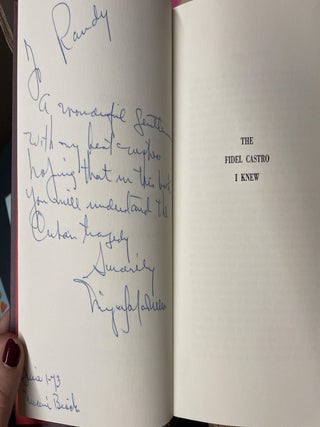 To Randy
A wonderful gentleman
with my best wishes
hoping that in this book
you will understand the
Cuban tragedy
Sincerely
Miami Beach
THE
FIDEL CASTRO
I KNEW